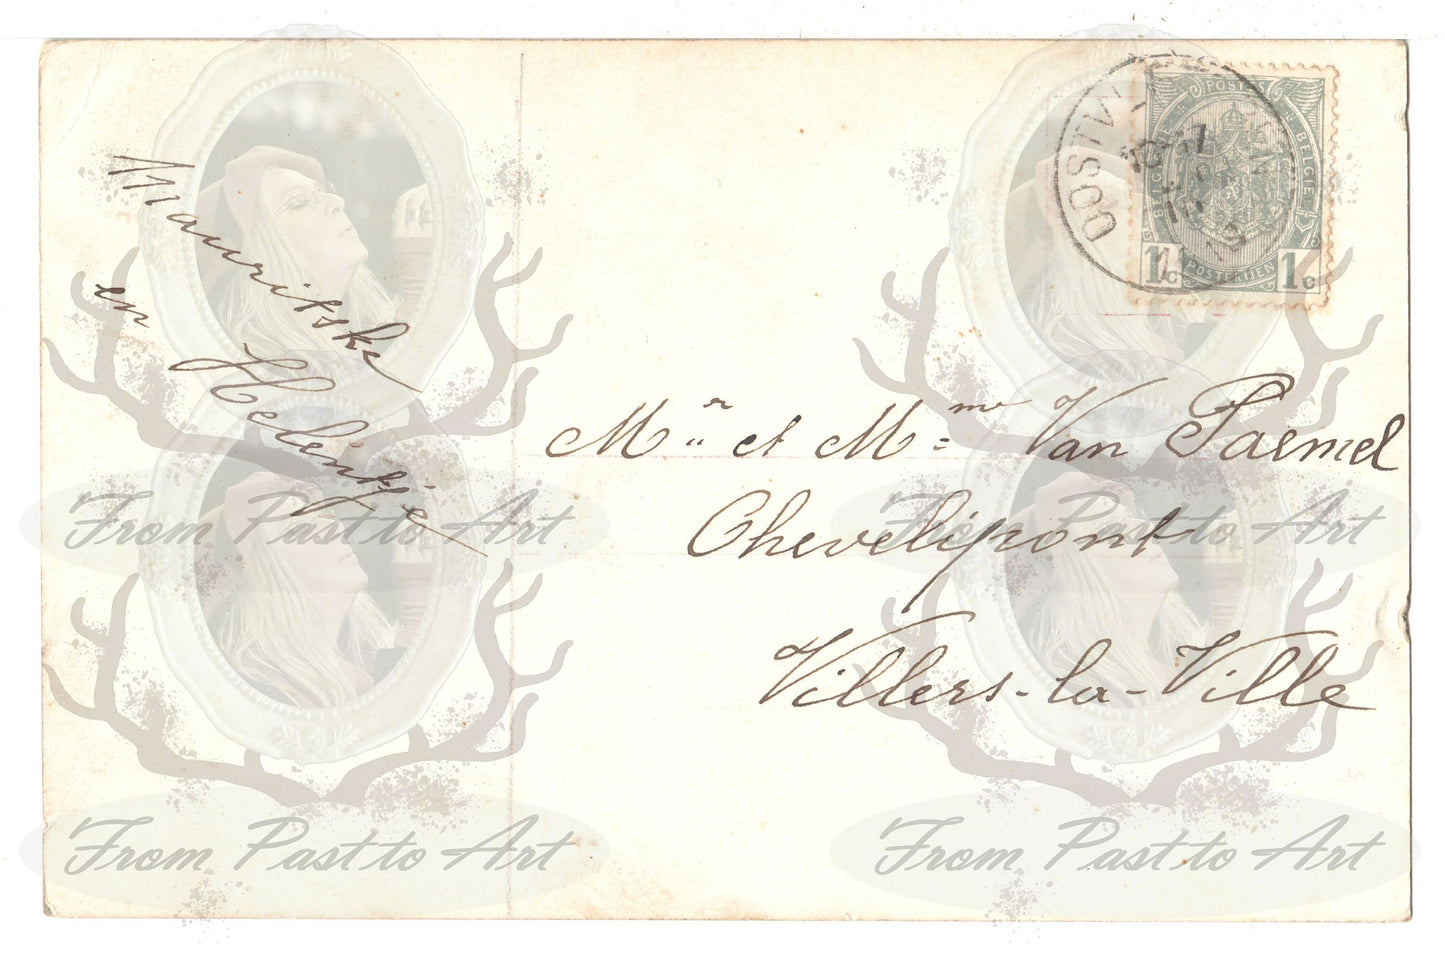 Mauritske
en
Helentje
OOSTVL
POSTES
BELGIQUE
BELGIE
1c
POSTERIJEN
1c
Mr et Mme Van Paemel
Chevelipont
Villers-la-Ville
From Past to Art
From Past to Art
From Past to Art
From Past to Art